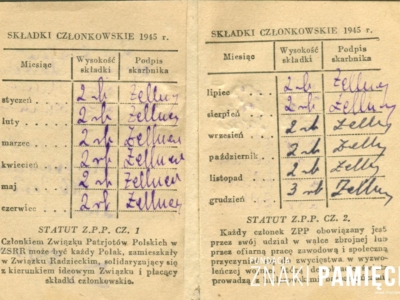 SKŁADKI CZŁONKOWSKIE 1945 r.
Miesiąc Wysokość składki Podpis skarbnika
styczeń 2 rb Zellner
luty 2 rb Zellner
marzec 2 rb Zellner
kwiecień 2 rb Zellner
maj 2 rb Zellner
czerwiec 2 rb Zellner
STATUT Z.P.P. CZ. 1
Członkiem Związku Patrjotów Polskich w
ZSRR może być każdy Polak, zamieszkały
w Związku Radzieckim, solidaryzujący się
z kierunkiem ideowym Związku i płacący
składki członkowskie.
SKŁADKI CZŁONKOWSKIE 1945 r.
Miesiąc Wysokość składki Podpis skarbnika
lipiec 2 rb Zellner
sierpień 2 rb Zellner
wrzesień 2 rb Zelln
październik 2 rb Zelln
listopad 2 rb Zelln
grudzień 3 rb Zelln
STATUT Z.P.P. CZ. 2.
Każdy członek ZPP obowiązany jest
przez swój udział w walce zbrojnej lub
przez ofiarną pracę zawodową i społeczną
przyczynić się do zwycięstwa w wyzwo-
leńczej wojnie
ZNAKI PAMIĘCI